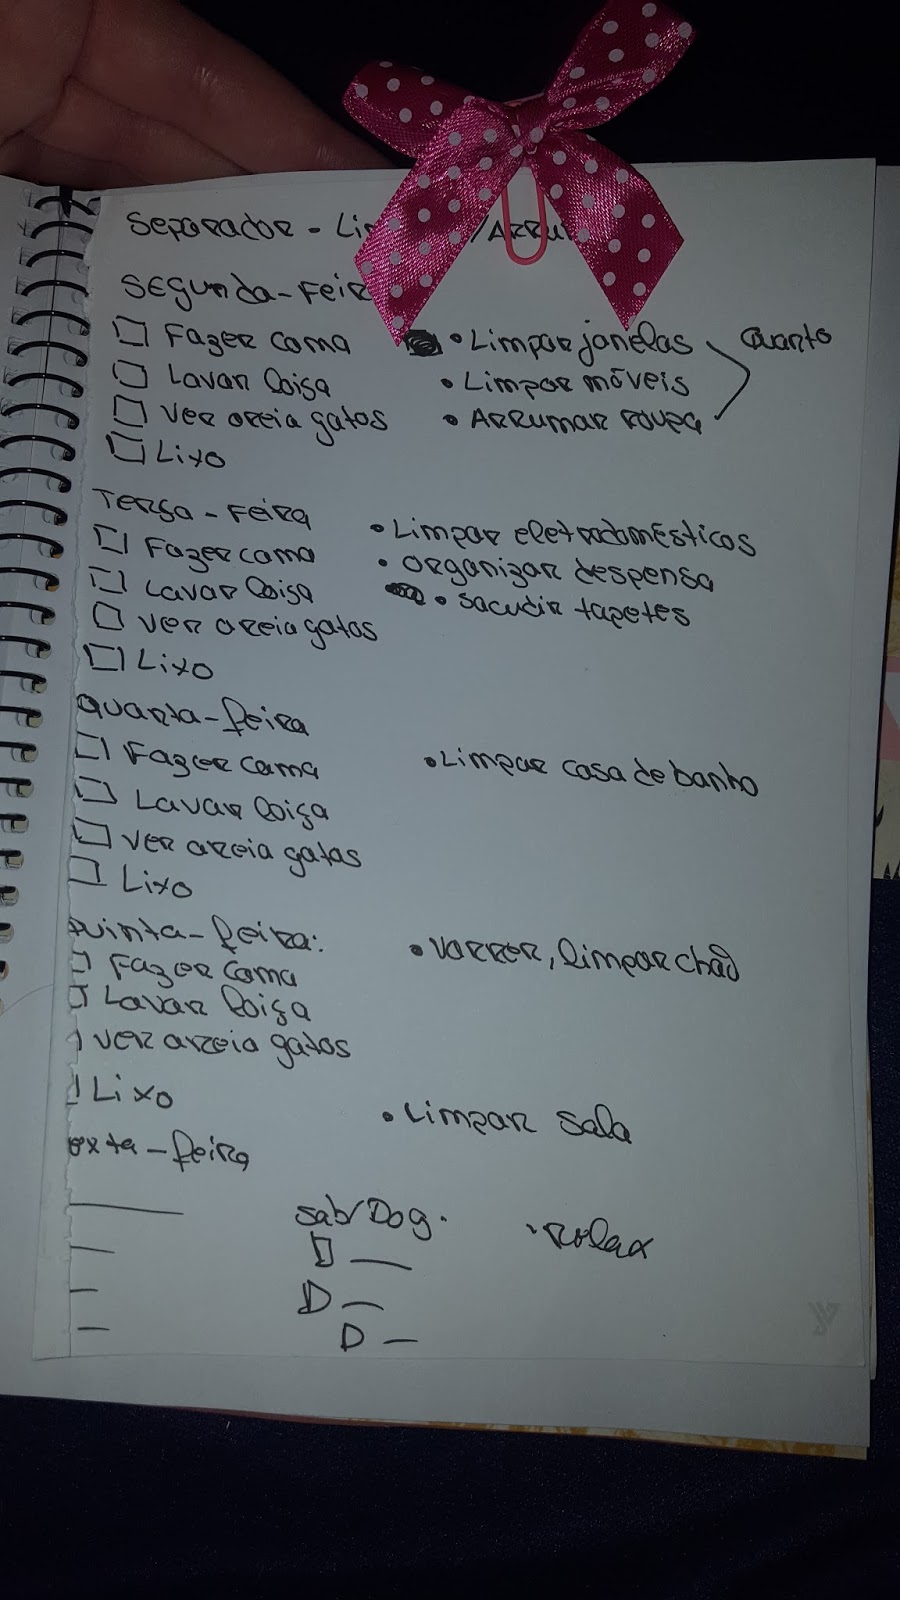 Separador - Arru
Segunda-Feir
Fazer cama • Limpar janelas Quarto
Lavar loiça • Limpar móveis
Ver areia gatos • Arrumar roupa
Lixo
Terça-Feira • Limpar eletrodomésticos
Fazer cama • Organizar despensa
Lavar loiça • Sacudir tapetes
Ver areia gatos
Lixo
Quarta-feira
Fazer cama • Limpar casa de banho
Lavar loiça
Ver areia gatos
Lixo
Quinta-feira: • Varrer, limpar chão
Fazer cama
Lavar loiça
Ver areia gatos
Lixo • Limpar sala
exta-feira
Sab/Dog. • Relax